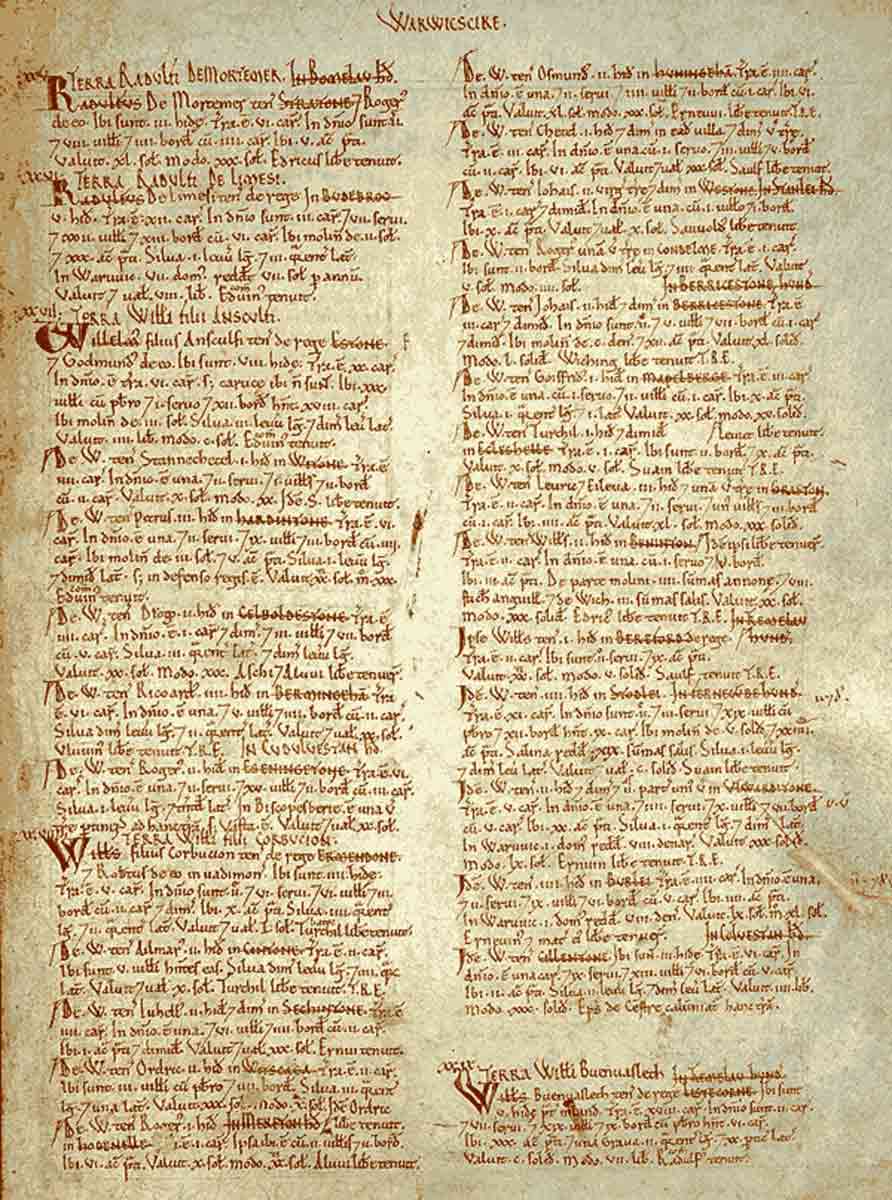 WARWICSCIRE.
TERRA RADULFI DE MORTEMER. In Bomelau hd.
RADULFUS De Mortemer ten STRATONE 7 Roger
de eo. Ibi sunt .III. hide. Tra .e. VI. car. In dnio sunt .II.
7 VIII. uilli 7 VII. bord cu .IIII. car. Ibi .V. ac pti.
Valuit .XL. sol. Modo .XXX. sol. Edricus libe tenuit.
TERRA RADULFI DE LIMESI.
RADULFUS De limesi ten de rege In BUDEBROC
V. hid. Tra .e. XII. car. In dnio sunt .III. car. 7 VII. serui.
uilli 7 XIII. bord cu .VI. car. Ibi molin de .II. sol.
7 XXX. ac pti. Silua .I. leuu lg. 7 III. qrent lat.
In Waruuic .VII. dom. redde VII. sol p annu.
Valuit 7 ual VIII. lib. Eduin tenuit.
XXVII. TERRA WILLI FILII ANSCULFI.
WILLELM filius Ansculfi ten de rege ESTONE.
7 Godmund de eo. Ibi sunt .VIII. hide. Tra .e. XX. car.
In dnio .e. tra .VI. car. s; caruce ibi n sunt. Ibi .XXX.
uilli cu pbro 7 I. seruo 7 XII. bord hnt .XVIII. car.
Ibi molin de .III. sol. Silua .III. leuu lg. 7 dim leu lat.
Valuit .IIII. lib. Modo .C. sol. Eduin tenuit.
De. W. ten Stannechetel .I. hid in WITONE. Tra .e.
IIII. car. In dnio .e. una. 7 II. serui. 7 I. uills 7 II. bord
cu .II. car. Valuit .X. sol. Modo .XX. Ide .S. libe tenuit.
De. W. ten Petrus .III. hid in HARDINTONE. Tra .e. VI.
car. In dnio .e. una. 7 II. serui. 7 IX. uilli 7 III. bord cu .IIII.
car. Ibi molin de .III. sol. 7 V. ac pti. Silua .I. leuu lg.
7 dimid lat. s; in defenso regis .e. Valuit .XX. sol. m .XXX.
Eduin tenuit.
De. W. ten Drogo .II. hid in CELBOLDESTONE. Tra .e.
IIII. car. In dnio .e. I. car 7 dim. 7 III. uilli 7 VII. bord
cu .V. car. Silua .III. qrent lat. 7 dim leuu lg.
Valuit .XX. sol. Modo .XXX. Aschi 7 Aluui libe tenuer.
De. W. ten Ricoard .IIII. hid in BERMINGEHA. Tra
e. VI. car. In dnio .e. una. 7 V. uilli 7 IIII. bord cu .II. car.
Silua dim leuu lg. 7 II. qrent lat. Valuit 7 ual .XX. sol.
Vluuin libe tenuit T.R.E. IN CUDULVESTAN hd.
De. W. ten Roger .II. hid in ESENINGETONE. Tra .e. VI.
car. In dnio .e. una. 7 II. serui. 7 XV. uilli 7 II. bord
Silua .I. leuu lg. 7 lat. In Biscopesberie .e. una V
tre ptines ad hanc tra. s; uasta .e. Valuit 7 ual .XX. sol.
TERRA WILLI FILII CORBUCION.
WILLS filius Corbucion ten de rege ERMENDONE.
7 Rotbtus de eo in uadimon. Ibi sunt .IIII. hide.
Tra .e. V. car. In dnio sunt .II. 7 VI. serui. 7 VI. uilli 7 III.
bord cu .II. car 7 dim. Ibi .X. ac pti. Silua .IIII. qrent
lg. 7 II. qrent lat. Valuit 7 ual .L. sol. Turchil libe tenuit.
De. W. ten Ailmar .II. hid in Tra .e. II. car.
Ibi sunt .V. uilli hntes eas. Silua dim leuu lg. 7 II. qrc
lat. Valuit 7 ual .X. sol. Turchil libe tenuit T.R.E.
De. W. ten Luhell .II. hid 7 dim in SECHINTONE. Tra .e.
IIII. car. In dnio .e. una. 7 VI. uilli 7 IIII. bord cu .II. car.
Ibi .I. ac pti 7 dimid. Valuit 7 ual .XX. sol. Ernui tenuit.
De. W. ten Ordric .II. hid in Tra .e. II. car.
Ibi sunt .III. uilli cu pbro 7 VII. bord. Silua .III. qrent
lg. 7 una lat. Valuit .XXX. sol. Modo .X. sol. Ide Ordric
De. W. ten Roger .I. hid IN MERETON HD. libe tenuit.
in HODENELLE .e. I. car. Ipsa ibi .e. cu .II. uillis 7 II. bord.
Ibi .VI. ac pti. Valuit .XX. sol. modo .XX. sol. Aluui libe tenuit.
De. W. ten Osmund .II. hid in HUNINGEHA. Tra .e. IIII. car.
In dnio .e. una. 7 II. serui. 7 IIII. uilli 7 II. bord cu .I. car. Ibi .VI.
ac pti. Valuit .XL. sol. modo .XXX. sol. Ernuui libe tenuit T.R.E.
De. W. ten Chetel .I. hid 7 dim in ead uilla. 7 dim V tre.
Tra .e. III. car. In dnio .e. una. cu .I. seruo. 7 III. uilli 7 V. bord
cu .II. car. Ibi .VI. ac pti. Valuit 7 ual .XXX. sol. Saulf libe tenuit.
De. W. ten Iohais .II. uirg tre 7 dim in WESTONE. IN STANLEI HD.
Tra .e. I. car. 7 dimid. In dnio .e. una. cu .I. uillo 7 I. bord.
Ibi .X. ac pti. Valuit 7 ual .X. sol. Sauuold libe tenuit.
De. W. ten Roger una V tre in CONDELME. Tra .e. I. car.
Ibi sunt .II. bord. Silua dim leu lg. 7 IIII. qrent lat. Valuit
V. sol. Modo .IIII. sol. IN BERRICESTONE HUND.
De. W. ten Johais .II. hid 7 dim in BERRICESTONE. Tra .e.
III. car 7 dimid. In dnio sunt .II. 7 V. uilli 7 VII. bord cu .I. car
7 dimid. Ibi molin de .C. den. 7 XII. ac pti. Valuit .XL. solid.
Modo .L. solid. Wiching libe tenuit T.R.E.
De. W. ten Goisfrid .I. hid in MAPELBERGE. Tra .e. III. car.
In dnio .e. una. cu .I. seruo. 7 II. uilli cu .I. car. Ibi .X. ac pti.
Silua .I. qrent lg. 7 I. lat. Valuit .XX. sol. modo .XV. solid.
De. W. ten Turchil .I. hid 7 dimid Leuiet libe tenuit.
in ECLESHELLE. Tra .e. I. car. Ibi sunt .II. bord. 7 X. ac pti.
Valuit .X. sol. modo .V. sol. Suain libe tenuit T.R.E.
De. W. ten Leuric 7 Eileua .III. hid 7 una V tre in GRASTON.
Tra .e. II. car. In dnio .e. una. 7 II. serui. 7 VII. uilli 7 II. bord
cu .I. car. Ibi .IIII. ac pti. Valuit .XL. sol. Modo .XXX. solid.
De. W. ten Wills .II. hid in BENINTON. Ide ipsi libe tenuer.
Tra .e. II. car. In dnio .e. una cu .I. seruo 7 V. bord.
Ibi .III. ac pti. De parte molini .IIII. sumas annone. 7 VIII.
stich anguill. 7 de Wich .III. sumas salis. Valuit .XX. sol.
Modo .XXX. solid. Edric libe tenuit T.R.E. IN REMELAU
Ipse Wills ten .I. hid in BEREFORD de rege. HUND.
Tra .e. II. car. Ibi sunt .II. serui. 7 X. ac pti.
Valuit .XX. sol. modo .V. solid. Saulf tenuit T.R.E.
Ide. W. ten .IIII. hid in STODLEI. IN FERNECUBE HUND.
Tra .e. XI. car. In dnio sunt .II. 7 III. serui 7 XIX. uilli cu
pbro 7 XII. bord hnt .IX. car. Ibi molin de .V. solid. 7 XXIIII.
ac pti. Salina redd .XIX. sumas salis. Silua .I. leuu lg.
7 dim leu lat. Valuit 7 ual .C. solid. Suain libe tenuit.
Ide. W. ten .II. hid 7 dim 7 II. part uni V in VLWARDITONE.
Tra .e. V. car. In dnio .e. una. 7 IIII. serui. 7 X. uilli 7 VII. bord
cu .V. car. Ibi .XX. ac pti. Silua .I. qrent lg. 7 dim lat.
In Waruuic .I. dom redd .VIII. denar. Valuit .XXX. solid.
Modo .LX. sol. Ernuin libe tenuit T.R.E.
Ide. W. ten .III. hid in BURLEI. Tra .e. IIII. car. In dnio .e. una.
7 II. serui. 7 IX. uilli 7 VI. bord cu .III. car. Ibi .XX. ac pti.
In Waruuic .I. dom redd .VIII. den. Valuit .LX. sol. m .XL. sol.
Erneuin 7 mat ei libe tenuer. IN COLVESTAN HD.
Ide. W. ten CILLENTONE. Ibi sun .III. hide. Tra .e. VI. car. In
dnio .e. una car. 7 IX. serui. 7 XIII. uilli 7 VI. bord cu .V. car.
Ibi .II. ac pti. Silua .II. leuu lg. 7 dim leu lat. Valuit .IIII. lib.
Modo .XXX. solid. Eps de Cestre caluniat hanc tra.
TERRA WILLI BUENVASLETH IN REMELAU HUND.
WILLS Buenuasleth ten de rege LISTECORNE. Ibi sunt
V. hide Tra .e. XVIII. car. In dnio sunt .II. car.
7 VII. serui. 7 XIX. uilli 7 IX. bord cu pbro hnt .VI. car.
Ibi .XXX. ac pti. 7 una graua .II. qrent lg. 7 XX. ptic lat.
Valuit .C. solid. Modo .VII. lib. Radulf tenuit.